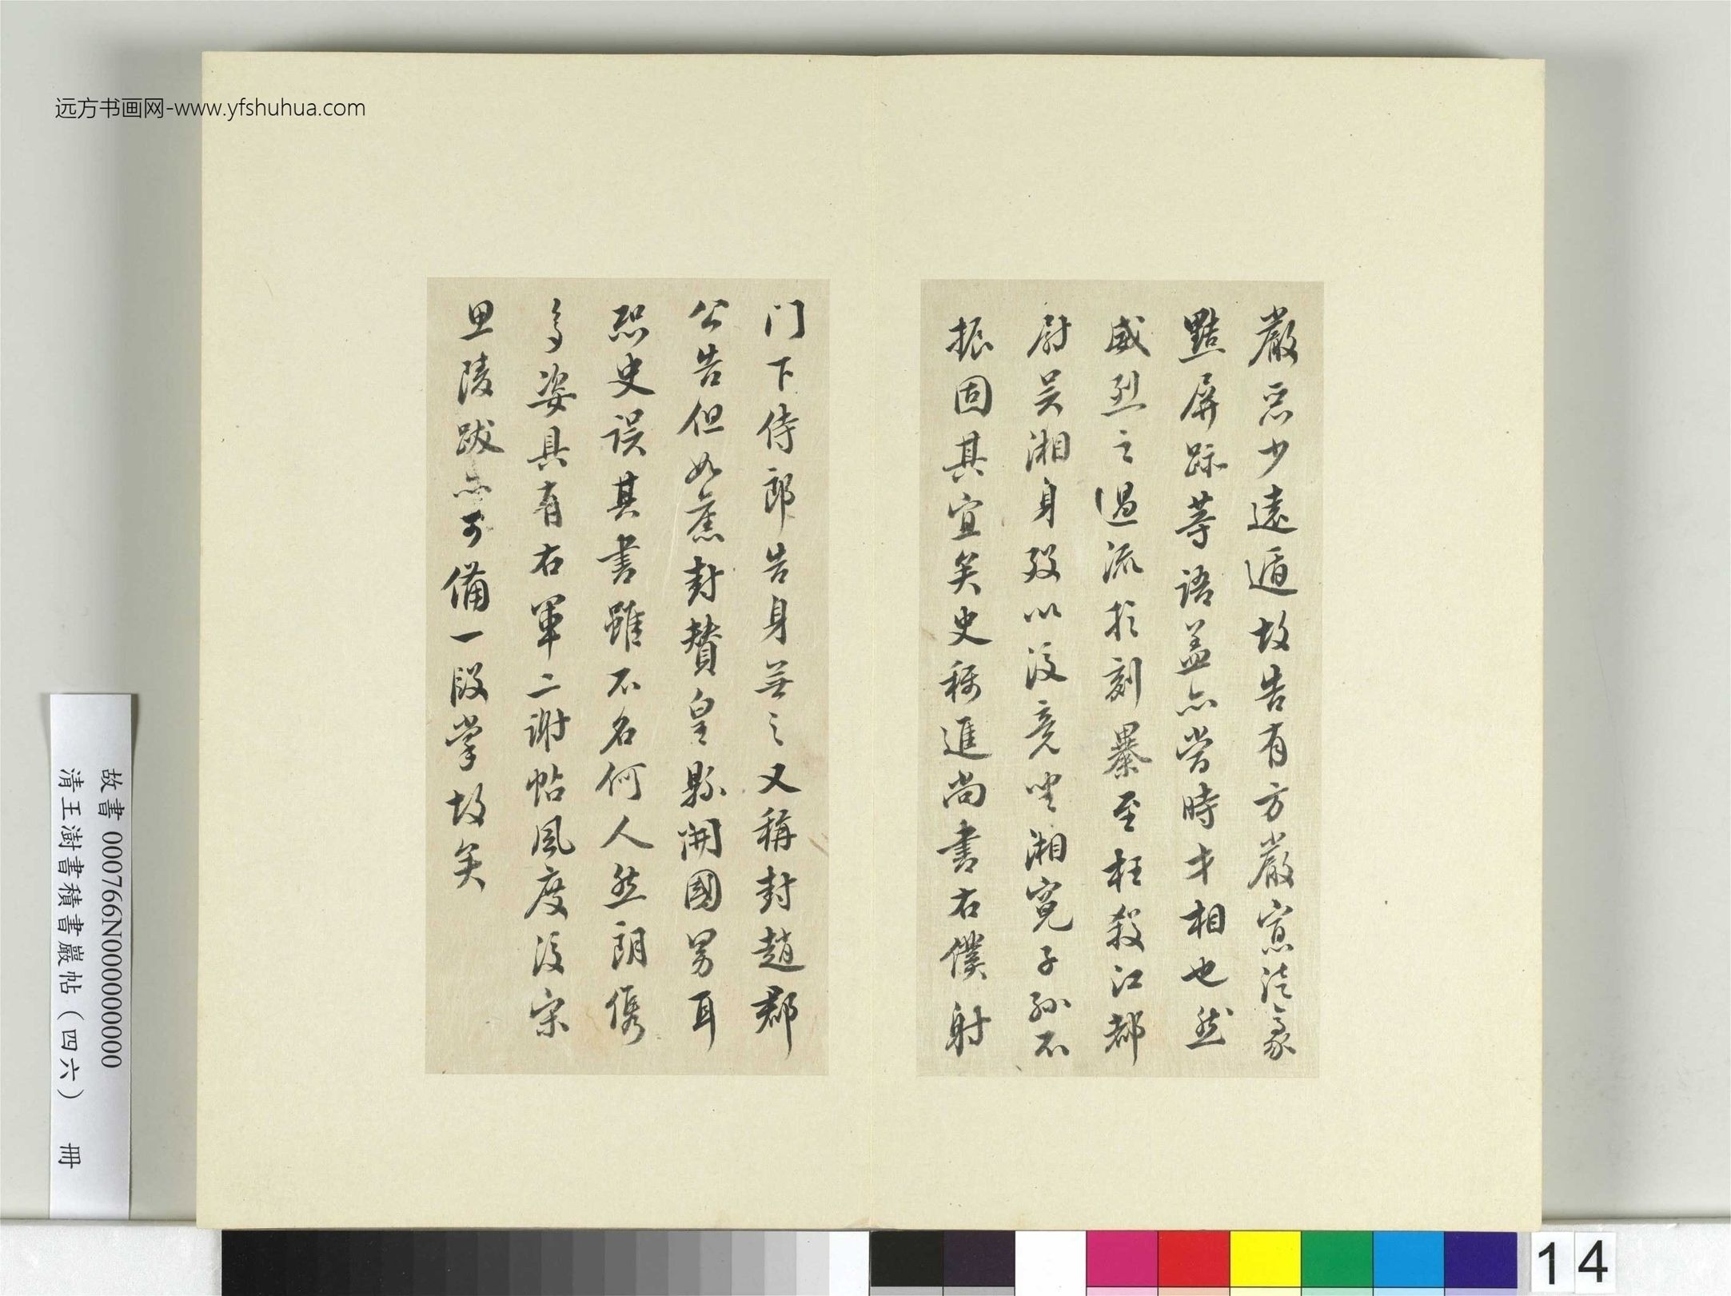 远方书画网-www.yfshuhua.com
嚴惡少遠遁故告有方嚴憲法豪
黠屏跡等語蓋亦當時才相也然
威烈之過流於刻暴至枉殺江都
尉吴湘身歿以後竟坐湘寃子孙不
振固其宜矣史稱進尚書右僕射
门下侍郎告身無之又稱封趙郡
公告但如舊封贊皇縣開國男耳
恐史误其書雖不名何人然朗儁
多姿具有右軍二谢帖風度後宋
思陵跋亦可備一段掌故矣
故書 000766N000000000
清王澍書積書巖帖（四六） 冊
14